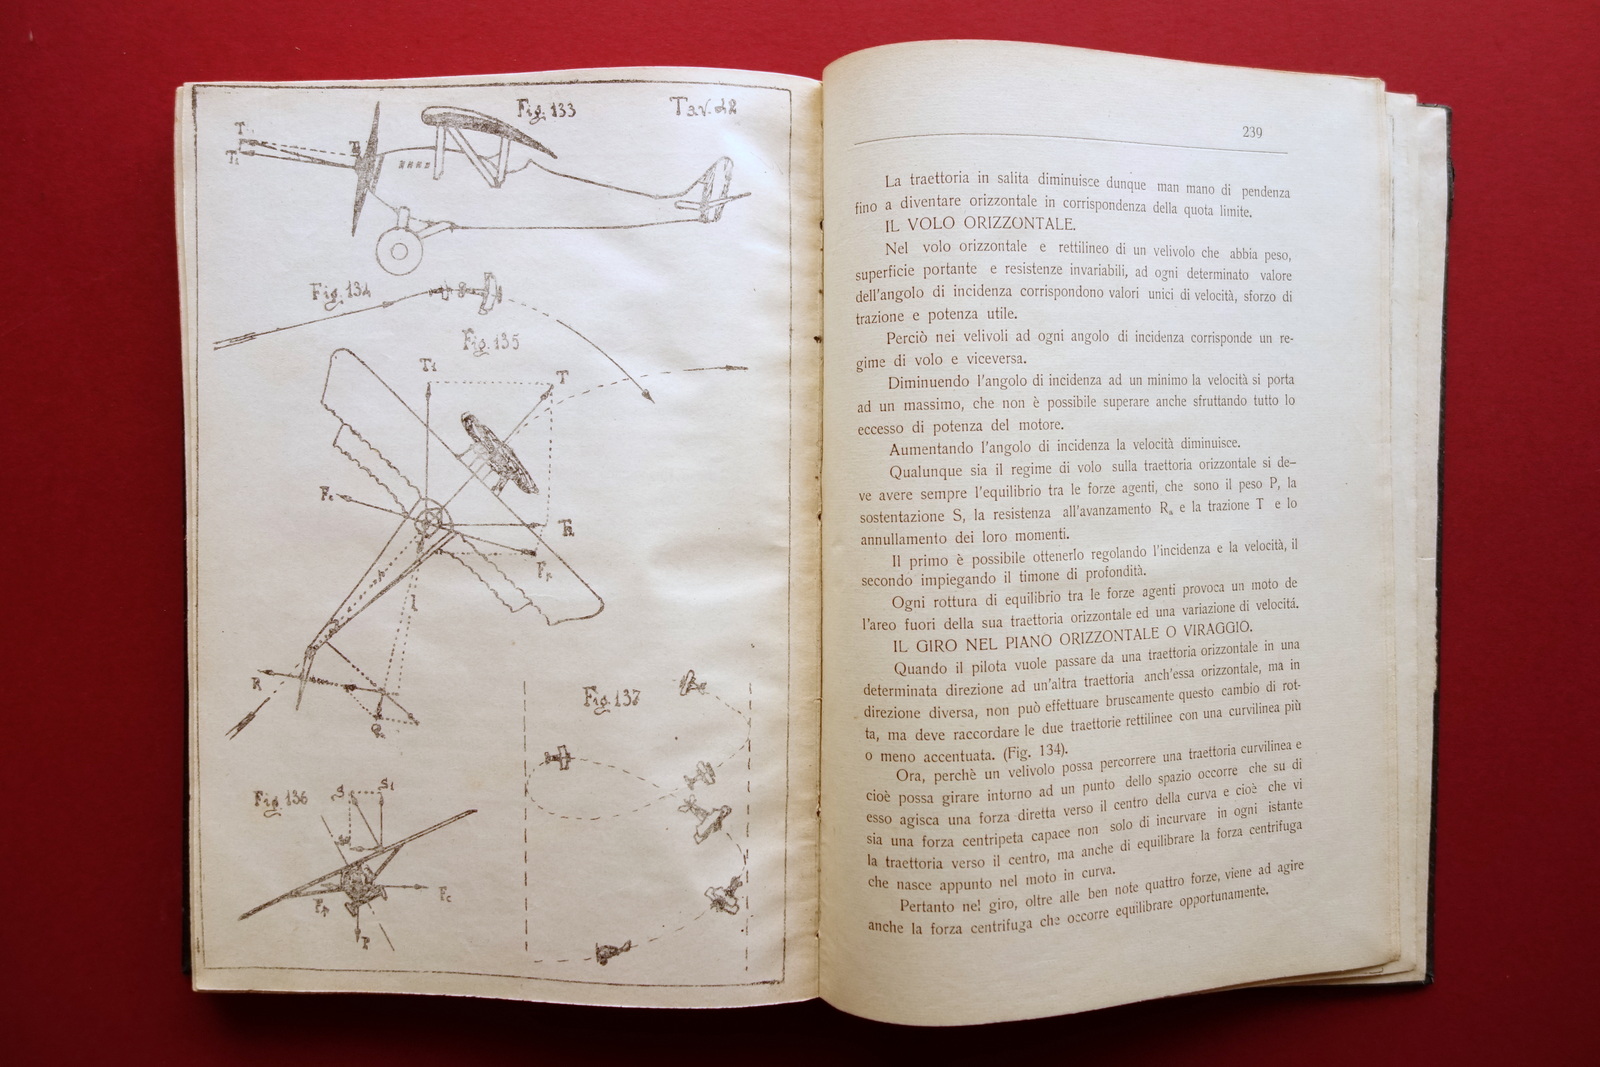 Fig. 133
Tav. 42
T
T₁
T₂
Fig. 134
Fig. 135
T₁
T
F꜀
T₂
Fₚ
l
R
Q
Fig. 137
Fig. 136
S
S₁
Fₚ
F꜀
P
239
La traettoria in salita diminuisce dunque man mano di pendenza
fino a diventare orizzontale in corrispondenza della quota limite.
IL VOLO ORIZZONTALE.
Nel volo orizzontale e rettilineo di un velivolo che abbia peso,
superficie portante e resistenze invariabili, ad ogni determinato valore
dell'angolo di incidenza corrispondono valori unici di velocità, sforzo di
trazione e potenza utile.
Perciò nei velivoli ad ogni angolo di incidenza corrisponde un re-
gime di volo e viceversa.
Diminuendo l'angolo di incidenza ad un minimo la velocità si porta
ad un massimo, che non è possibile superare anche sfruttando tutto lo
eccesso di potenza del motore.
Aumentando l'angolo di incidenza la velocità diminuisce.
Qualunque sia il regime di volo sulla traettoria orizzontale si de-
ve avere sempre l'equilibrio tra le forze agenti, che sono il peso P, la
sostentazione S, la resistenza all'avanzamento Rₐ e la trazione T e lo
annullamento dei loro momenti.
Il primo è possibile ottenerlo regolando l'incidenza e la velocità, il
secondo impiegando il timone di profondità.
Ogni rottura di equilibrio tra le forze agenti provoca un moto de
l'areo fuori della sua traettoria orizzontale ed una variazione di velocitá.
IL GIRO NEL PIANO ORIZZONTALE O VIRAGGIO.
Quando il pilota vuole passare da una traettoria orizzontale in una
determinata direzione ad un'altra traettoria anch'essa orizzontale, ma in
direzione diversa, non può effettuare bruscamente questo cambio di rot-
ta, ma deve raccordare le due traettorie rettilinee con una curvilinea più
o meno accentuata. (Fig. 134).
Ora, perchè un velivolo possa percorrere una traettoria curvilinea e
cioè possa girare intorno ad un punto dello spazio occorre che su di
esso agisca una forza diretta verso il centro della curva e cioè che vi
sia una forza centripeta capace non solo di incurvare in ogni istante
la traettoria verso il centro, ma anche di equilibrare la forza centrifuga
che nasce appunto nel moto in curva.
Pertanto nel giro, oltre alle ben note quattro forze, viene ad agire
anche la forza centrifuga che occorre equilibrare opportunamente.